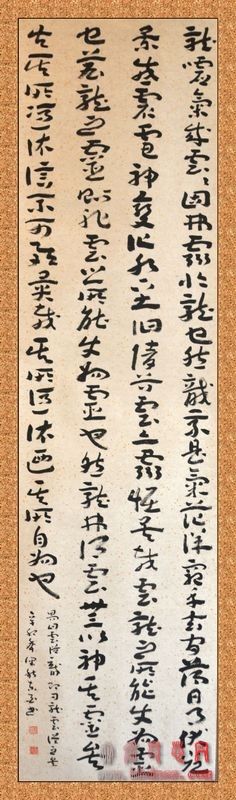 龍噓氣成雲雲固弗靈於龍也然龍乘是氣茫洋窮乎玄間薄日月伏光
景感震電神變化水下土汩陵谷雲亦靈怪矣哉雲龍之所能使為靈
也若龍之靈則非雲之所能使為靈也然龍弗得雲無以神其靈矣
失其所憑依信不可歟異哉其所憑依乃其自為也
易曰雲從龍既曰龍雲從之矣
辛卯年 書